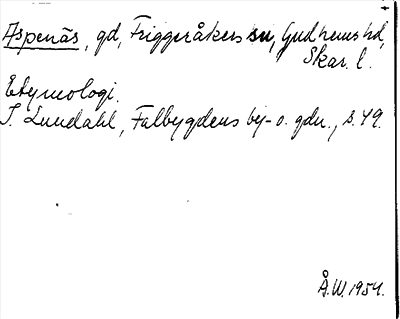 Aspenäs, gd, Friggeråkers sn, Gudhems hd,
Skar. l.
Etymologi.
I. Lundahl, Falbygdens by- o. gdn., s. 49.
Å.W. 1954.